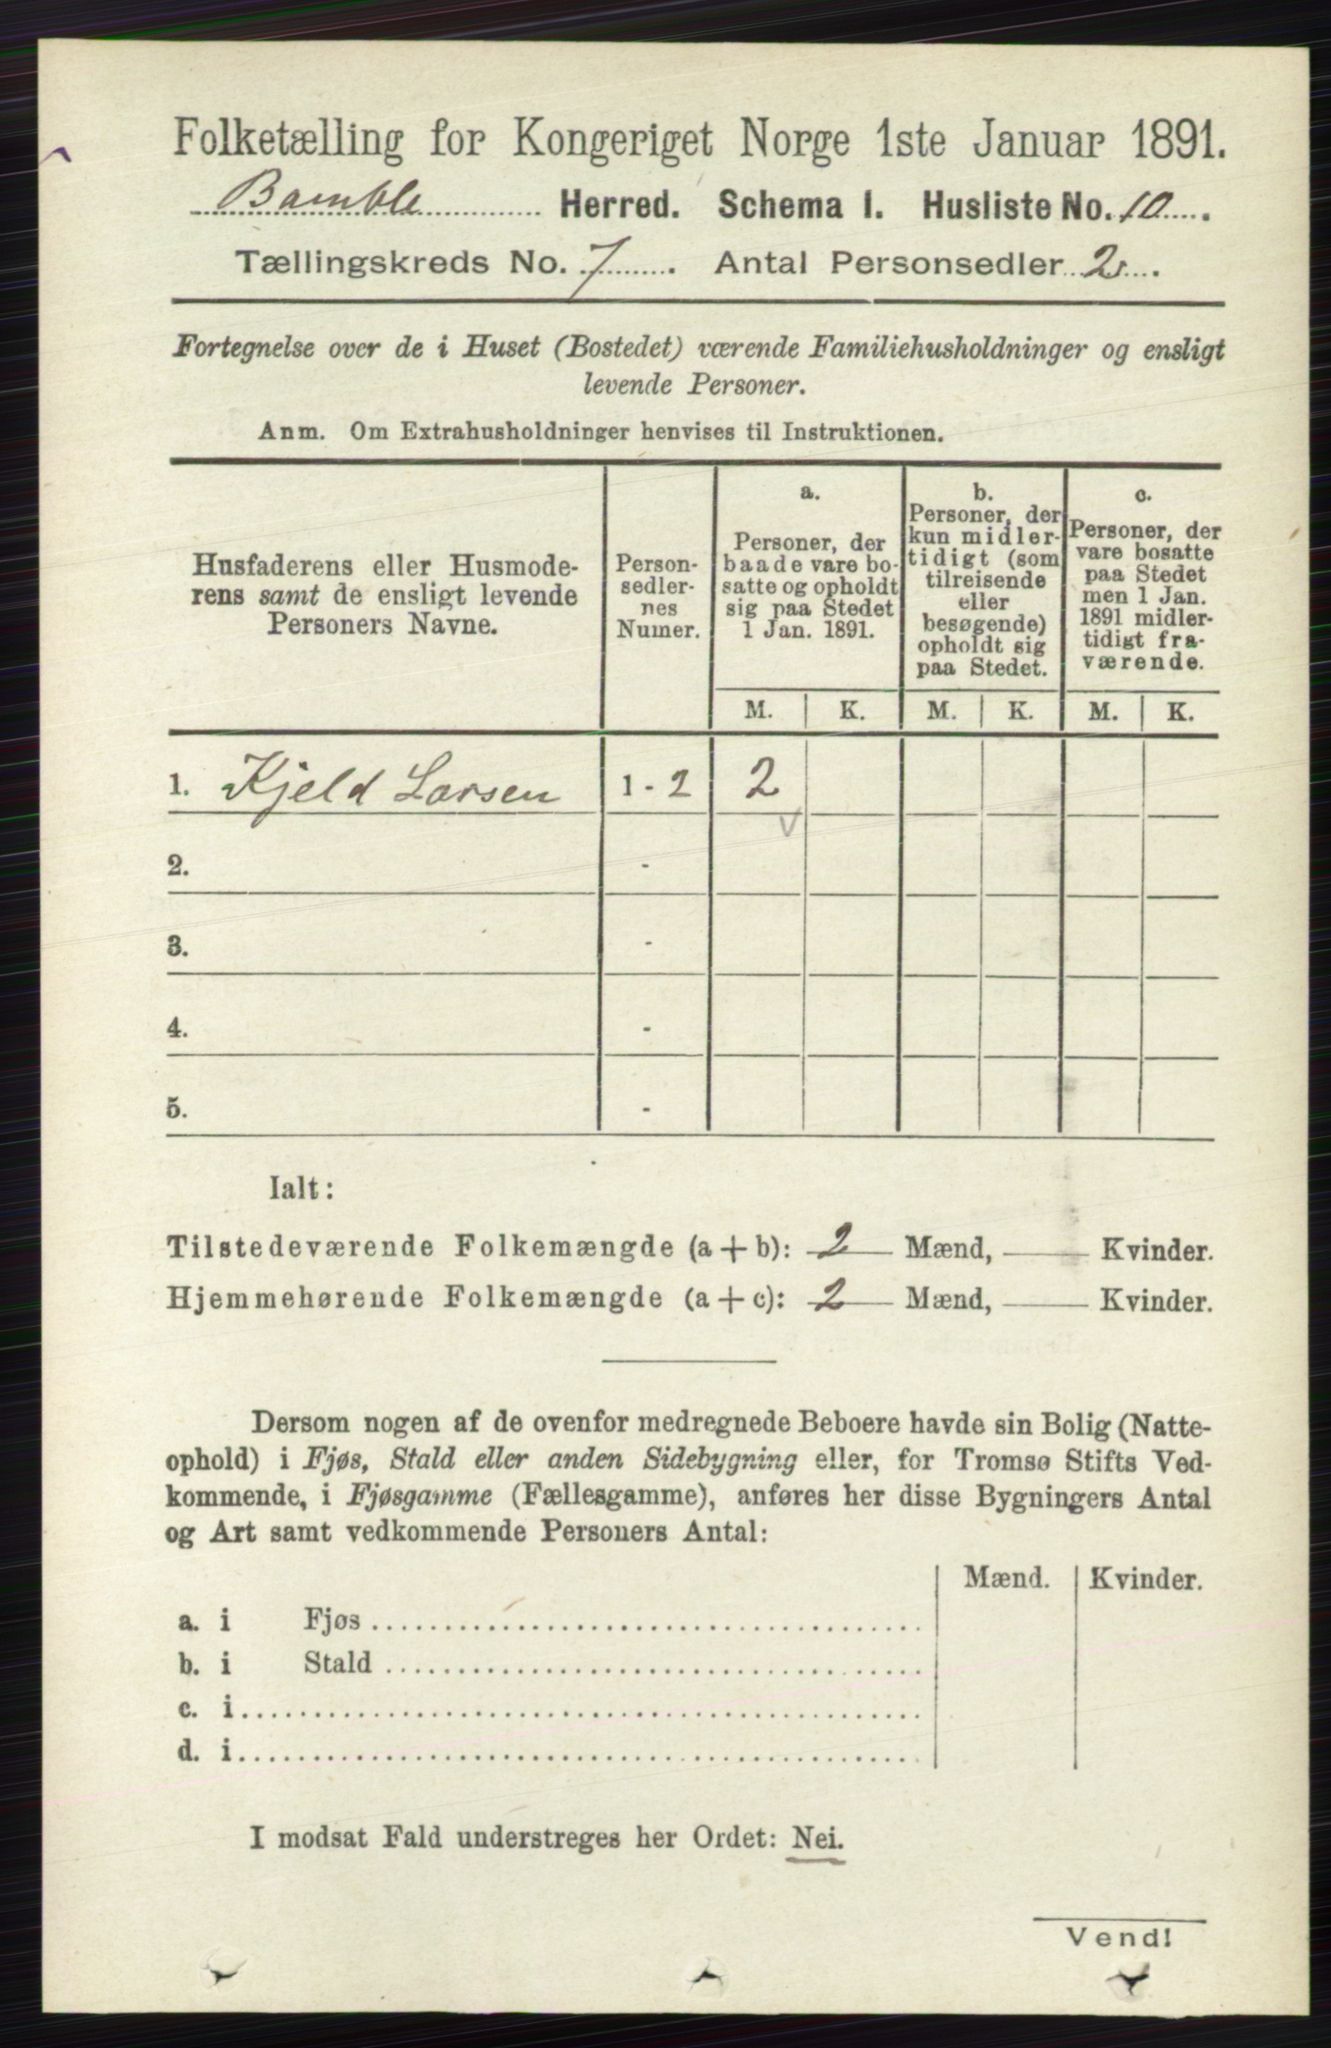 Folketælling for Kongeriget Norge 1ste Januar 1891.
Bamble Herred. Schema I. Husliste No. 10.
Tællingskreds No. 7. Antal Personsedler 2.
Fortegnelse over de i Huset (Bostedet) værende Familiehusholdninger og ensligt
levende Personer.
Anm. Om Extrahusholdninger henvises til Instruktionen.
Husfaderens eller Husmode-
rens samt de ensligt levende
Personers Navne.
Person-
sedler-
nes
Numer.
a.
Personer, der
baade vare bo-
satte og opholdt
sig paa Stedet
1 Jan. 1891.
b.
Personer, der
kun midler-
tidigt (som
tilreisende
eller
besøgende)
opholdt sig
paa Stedet.
c.
Personer, der
vare bosatte
paa Stedet
men 1 Jan.
1891 midler-
tidigt fra-
værende.
M. K. M. K. M. K.
1. Kjeld Larsen 1 - 2 2
2. -
3. -
4. -
5. -
Ialt:
Tilstedeværende Folkemængde (a + b): 2 Mænd, — Kvinder.
Hjemmehørende Folkemængde (a + c): 2 Mænd, — Kvinder.
Dersom nogen af de ovenfor medregnede Beboere havde sin Bolig (Natte-
ophold) i Fjøs, Stald eller anden Sidebygning eller, for Tromsø Stifts Ved-
kommende, i Fjøsgamme (Fællesgamme), anføres her disse Bygningers Antal
og Art samt vedkommende Personers Antal:
Mænd. Kvinder.
a. i Fjøs
b. i Stald
c. i
d. i
I modsat Fald understreges her Ordet: Nei.
Vend!